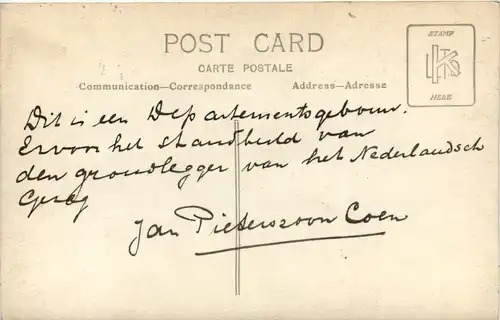 POST CARD
CARTE POSTALE
Communication—Correspondance
Address—Adresse
STAMP
HERE
Dit is een Departementsgebouw.
Ervoor het standbeeld van
den grondlegger van het Nederlandsch
Gezag
Jan Pieterszoon Coen